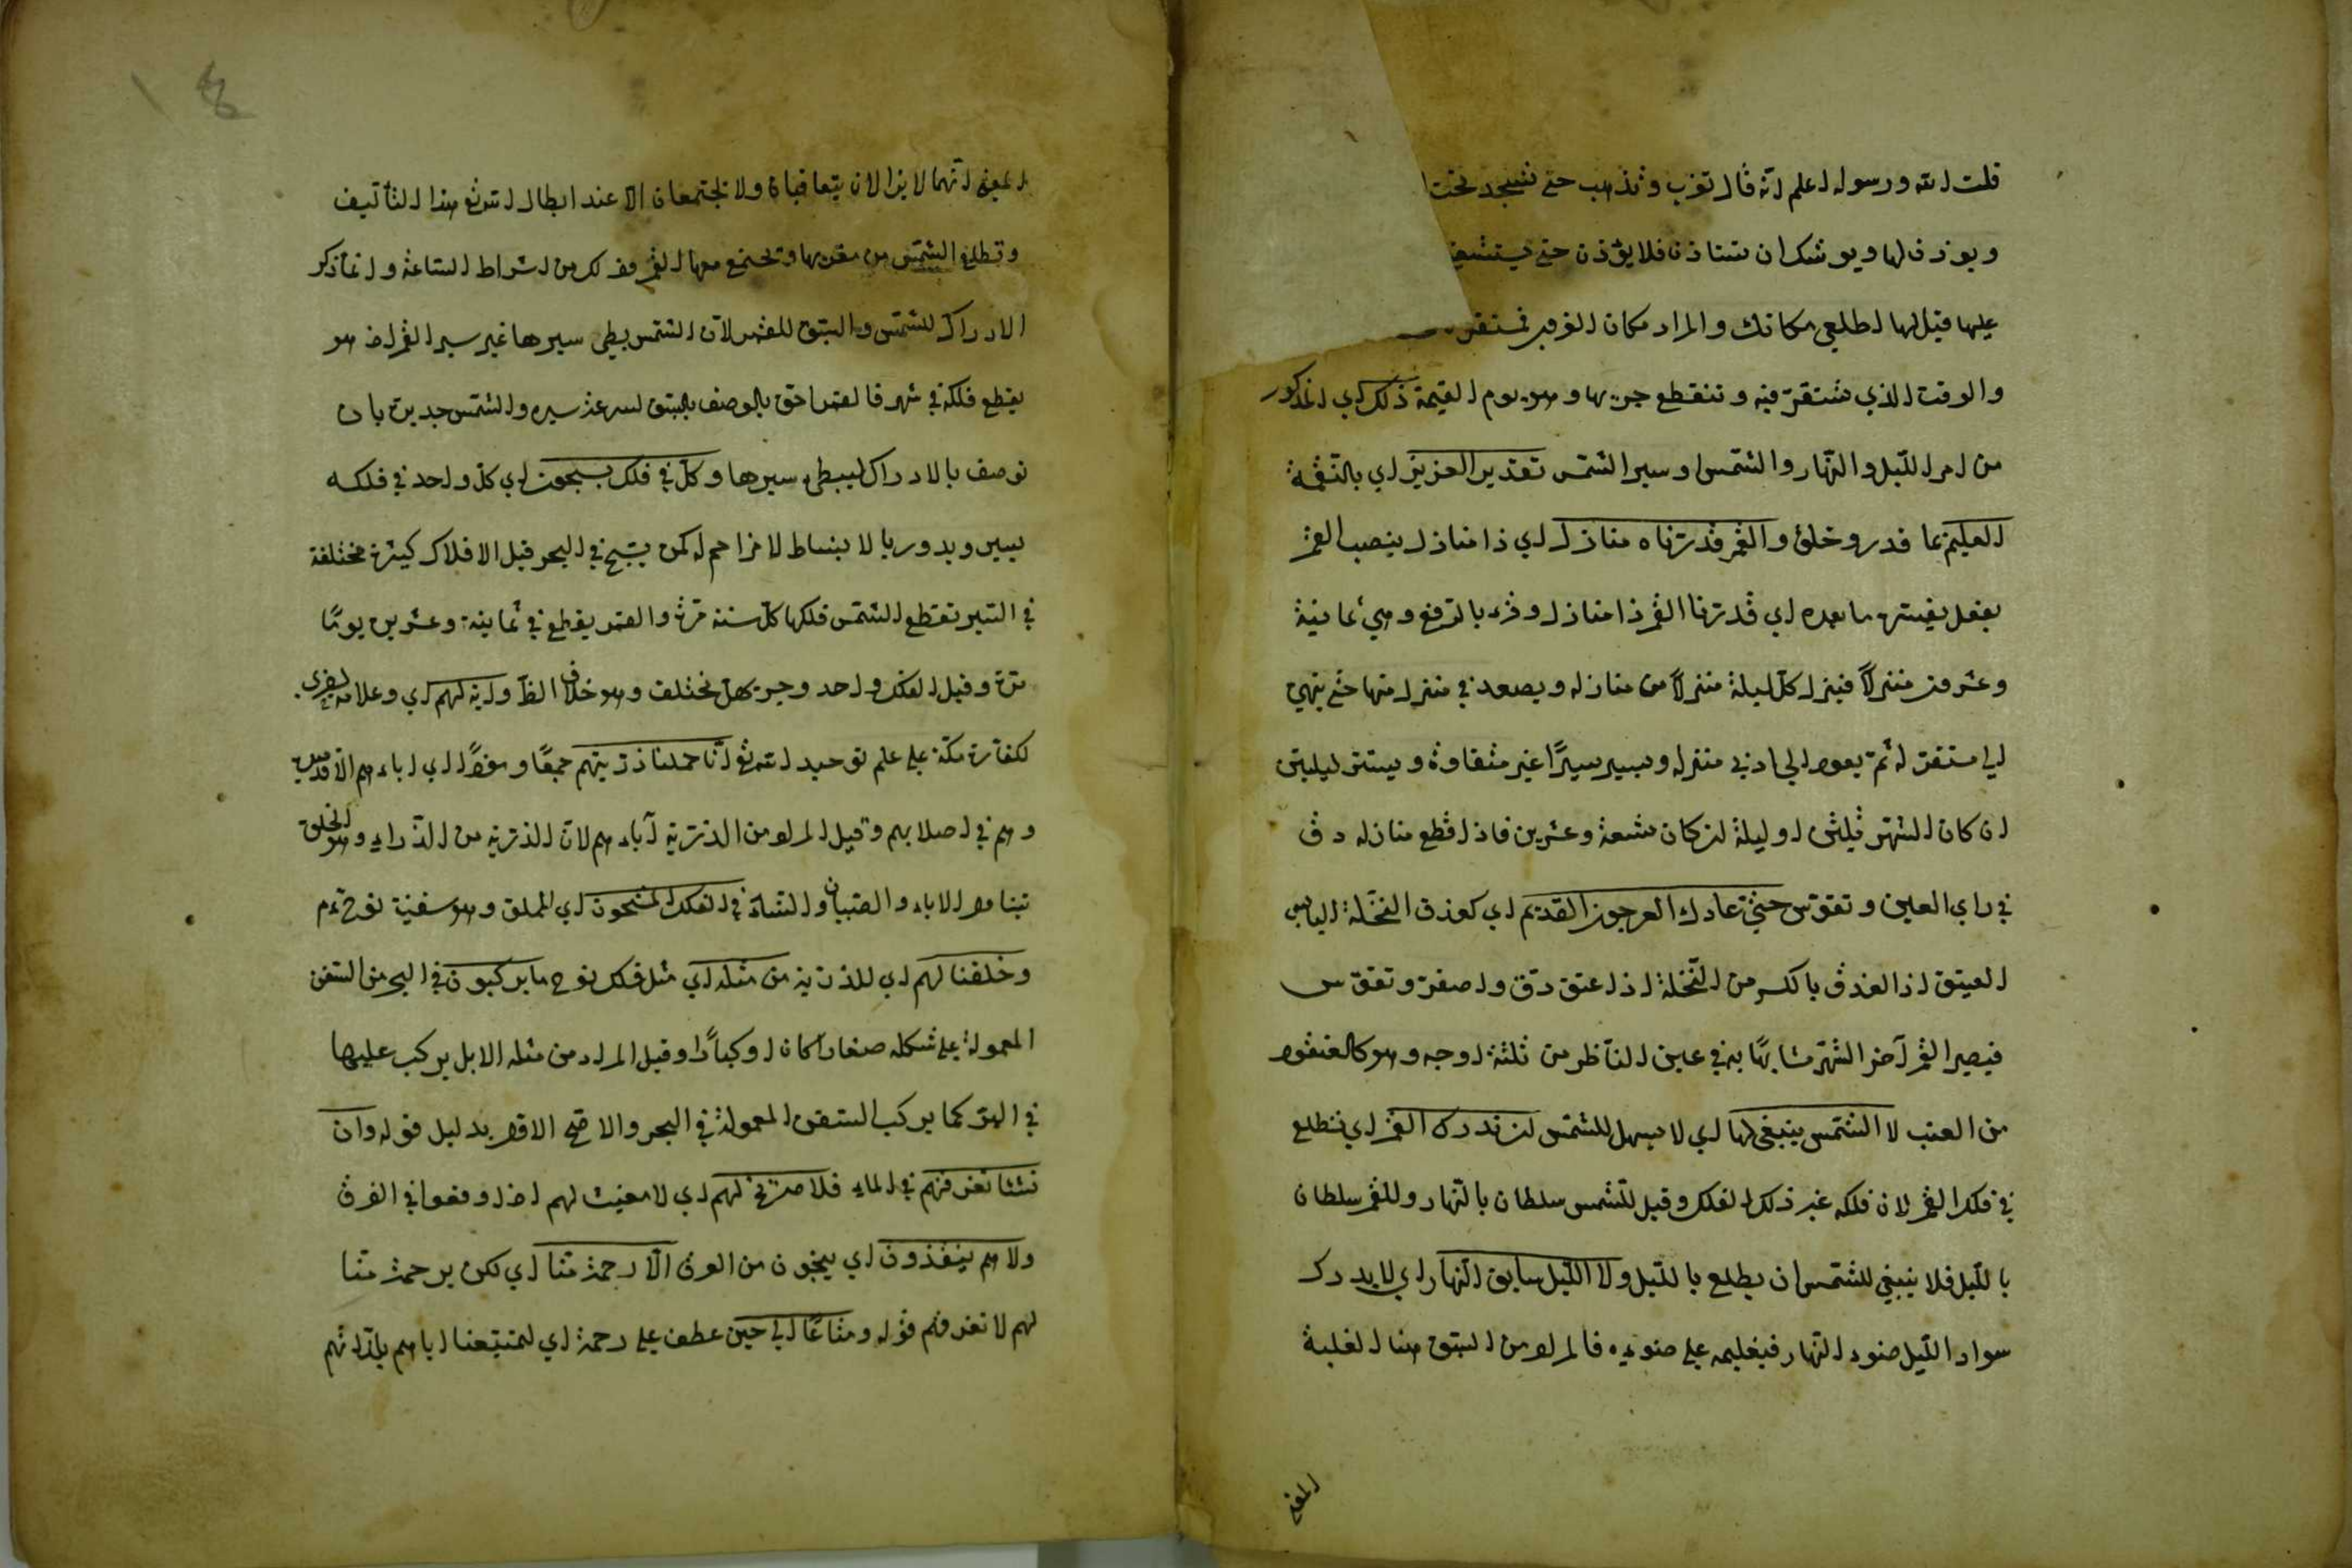 قلت الله ورسوله اعلم انه قال تغرب وتذهب حتى تسجد تحت
ويوذن لها ويوشك ان تستاذن فلا يؤذن حتى
عليها قيل لها اطلعي مكانك والمراد مكان الغروب
والوقت الذي تستقر فيه وتنقطع جريها وهو يوم القيمة ذلك اي المذكور
من امر الليل والنهار والشمس وسير الشمس تقدير العزيز اي بالنقمة
العليم بما قدر وخلق والقمر قدرناه منازل اي ذا منازل بنصب القمر
بفعل يفسره ما بعده اي قدرنا القمر ذا منازل وقرء بالرفع وهي ثمانية
وعشرون منزلاً فينزل كل ليلة منزلاً من منازله ويصعد في منزل منها حتى ينهي
الي مستقر له ثم يعود الي ادني منزله ويسير سيرًا غير متقاوة ويستتر ليلتين
ان كان الشهر ثلثين او ليلة ان كان تسعة وعشرين فاذا قطع منازله دق
في راي العين وتقوس حتى عاد كالعرجون القديم اي كعذق النخلة اليابس
العتيق اذا العذق بالكسر من النخلة اذا عتق دق واصفر وتقوس
فيصير القمر آخر الشهر مشابهًا به في عين الناظر من ثلثة اوجه وهو كالعنقود
من العنب لا الشمس ينبغي لها اي لا يسهل للشمس ان تدرك القمر اي فتطلع
في فلك القمر لان فلكه غير ذلك الفلك وقيل للشمس سلطان بالنهار وللقمر سلطان
بالليل فلا ينبغي للشمس ان يطلع بالليل ولا الليل سابق النهار اي لا يدرك
سواد الليل ضوء النهار فيغلبه على ضوءه فالمراد من السبق هنا الغلبة
المعنى
المعنى انهما لا يزالان يتعاقبان ولا يجتمعان الا عند ابطال الله هذا التأليف
وتطلع الشمس من مغربها وتجتمع معها القمر وذلك من اشراط الساعة وانما ذكر
الادراك للشمس والسبق للقمر لان الشمس بطي سيرها غير سير القمر اذ هو
يقطع فلكه في شهر فالقمر احق بالوصف بالسبق لسرعة سيره والشمس جديرة بان
توصف بالادراك لبطي سيرها وكل في فلك يسبحون اي كل واحد في فلكه
يسير ويدور بالانبساط لا مزاحم له كمن يسبح في البحر قيل الافلاك كثيرة مختلفة
في السير تقطع الشمس فلكها كل سنة مرة والقمر يقطع في ثمانية وعشرين يومًا
مرة وقيل الفلك واحد وجريهن مختلف وهو خلاف الظ واية لهم اي وعلامة اخرى
لكفار مكة على علم توحيد الله انا حملنا ذريتهم جمعًا ومفردًا اي اباءهم الاقدمين
وهم في اصلابهم وقيل المراد من الذرية آباءهم لان الذرية من الذراء وهو الخلق
تتناول الاباء والصبيان والنساء في الفلك المشحون اي المملق وهو سفينة نوح عم
وخلقنا لهم اي للذرية من مثله اي مثل فلك نوح ما يركبون في البحر من السفن
المعمولة على شكله صغارًا كان او كبارًا وقيل المراد من مثله الابل يركب عليها
في البر كما يركب السفن المعمولة في البحر والاصح الاول بدليل قوله وان
نشا نغرقهم في الماء فلا صريخ لهم اي لا مغيث لهم اذ اوقعوا في الغرق
ولا هم ينقذون اي ينجون من الغرق الا رحمة منا اي لكن يرحمة منا
لهم لا نغرقهم قوله ومتاعًا الى حين عطف على رحمة اي لتمتيعنا اياهم بلذاتهم